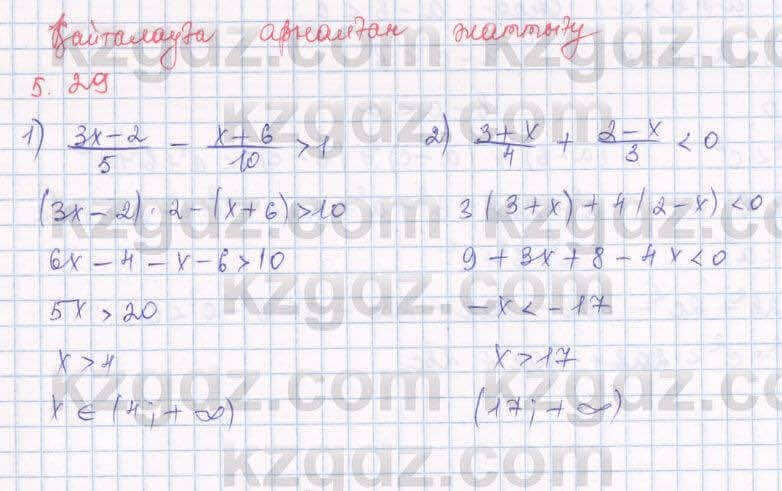 Қайталауға арналған жаттығу
5. 29
1) (3x-2)/5 - (x+6)/10 > 1
(3x-2)·2-(x+6)>10
6x-4-x-6>10
5x>20
x>4
x∈(4;+∞)
2) (3+x)/4 + (2-x)/3 < 0
3(3+x)+4(2-x)<0
9+3x+8-4x<0
-x<-17
x>17
(17;+∞)
kzgdz.com
kzgdz.com
kzgdz.com
kzgdz.com
kzgdz.com
kzgdz.com